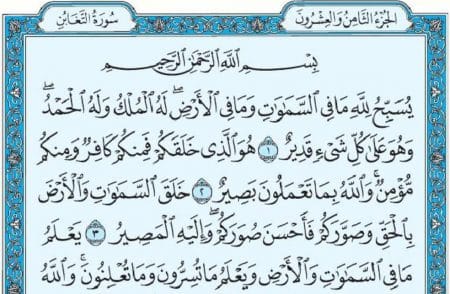 سُورَةُ التَّغَابُنِ
الجُزْءُ الثَّامِنُ وَالعِشْرُونَ
بِسْمِ اللَّهِ الرَّحْمَٰنِ الرَّحِيمِ
يُسَبِّحُ لِلَّهِ مَا فِي السَّمَٰوَٰتِ وَمَا فِي الْأَرْضِ ۖ لَهُ الْمُلْكُ وَلَهُ الْحَمْدُ ۖ
وَهُوَ عَلَىٰ كُلِّ شَيْءٍ قَدِيرٌ ١ هُوَ الَّذِي خَلَقَكُمْ فَمِنكُمْ كَافِرٌ وَمِنكُم
مُّؤْمِنٌ ۚ وَاللَّهُ بِمَا تَعْمَلُونَ بَصِيرٌ ٢ خَلَقَ السَّمَٰوَٰتِ وَالْأَرْضَ
بِالْحَقِّ وَصَوَّرَكُمْ فَأَحْسَنَ صُوَرَكُمْ ۖ وَإِلَيْهِ الْمَصِيرُ ٣ يَعْلَمُ
مَا فِي السَّمَٰوَٰتِ وَالْأَرْضِ وَيَعْلَمُ مَا تُسِرُّونَ وَمَا تُعْلِنُونَ ۚ وَاللَّهُ